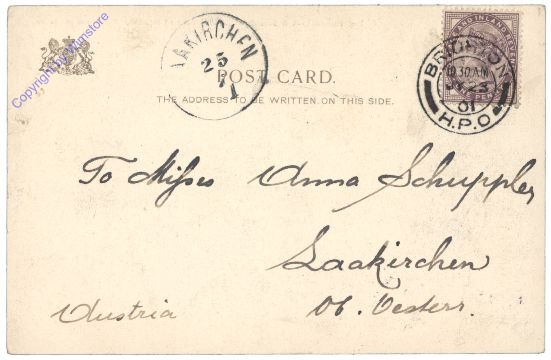 Copyright by Wmstore
LAAKIRCHEN
25
1
POST CARD.
THE ADDRESS TO BE WRITTEN ON THIS SIDE.
BRIGHTON
10 30 AM
23
01
H.P.O.
To Misses Anna Schuppler
Laakirchen
Ob. Oesterr.
Austria